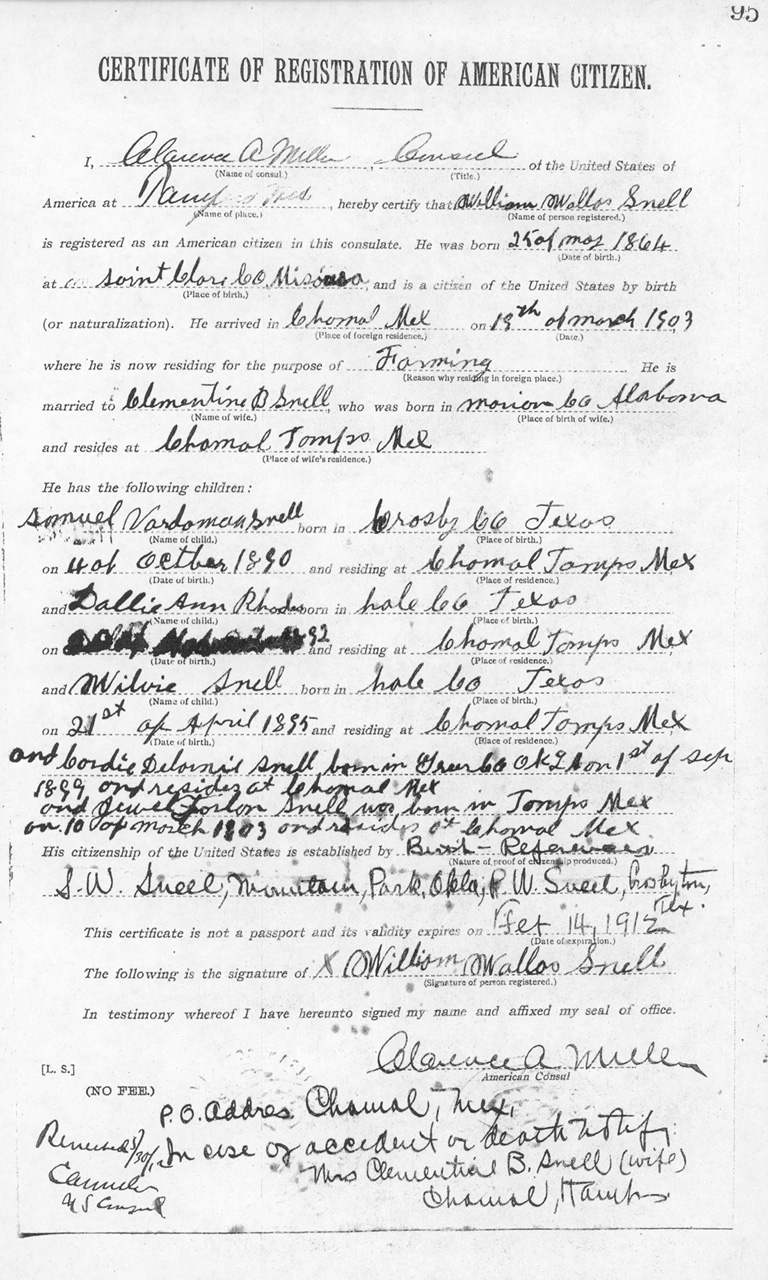 95
CERTIFICATE OF REGISTRATION OF AMERICAN CITIZEN.
I, Clarence A Miller, Consul of the United States of
(Name of consul.) (Title.)
America at , hereby certify that William Wallas Snell
(Name of place.) (Name of person registered.)
is registered as an American citizen in this consulate. He was born 25 of may 1864
(Date of birth.)
at Saint Clare Co, and is a citizen of the United States by birth
(Place of birth.)
(or naturalization). He arrived in Chamal Mex on 19th of march 1903
(Place of foreign residence.) (Date.)
where he is now residing for the purpose of Farming He is
(Reason why residing in foreign place.)
married to Clementine B Snell, who was born in marion Co Alabama
(Name of wife.) (Place of birth of wife.)
and resides at Chamal Tamps Mex
(Place of wife's residence.)
He has the following children:
Samuel Vardaman Snell born in Crosby Co Texas
(Name of child.) (Place of birth.)
on 4 of Octber 1890 and residing at Chamal Tamps Mex
(Date of birth.) (Place of residence.)
and Dallie Ann Rhodes born in hale Co Texas
(Name of child.) (Place of birth.)
on 92 and residing at Chamal Tamps Mex
(Date of birth.) (Place of residence.)
and Milvie Snell born in hale Co Texas
(Name of child.) (Place of birth.)
on 21st of April 1895 and residing at Chamal Tamps Mex
(Date of birth.) (Place of residence.)
and Cordie Snell born in Greer Co on 1st of sep
1899 and resides at Chamal Mex
and Jewel Snell was born in Tamps Mex
on 10 of march 1903 and resides at Chamal Mex
His citizenship of the United States is established by Birth - References
(Nature of proof of citizenship produced.)
S. W. Sneel, Mountain, Park, Okla, P. W. Sneel, Crosbyton,
Tex.
This certificate is not a passport and its validity expires on Feb 14, 1912
(Date of expiration.)
The following is the signature of X William Wallas Snell
(Signature of person registered.)
In testimony whereof I have hereunto signed my name and affixed my seal of office.
Clarence A Miller
American Consul
[L. S.]
(NO FEE.)
P.O. Addres Chamal, Mex.
In case of accident or death notify
Mrs Clementine B. Snell (wife)
Chamal, Tamps
Renewed
US Consul